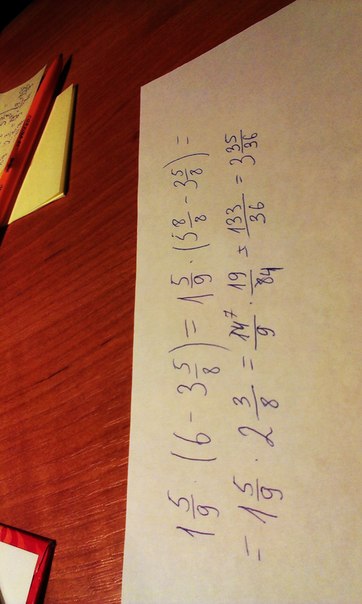 1 5/9 · (6 - 3 5/8) = 1 5/9 · (5 8/8 - 3 5/8) =
= 1 5/9 · 2 3/8 = 14 7/9 · 19/84 = 133/36 = 3 35/36